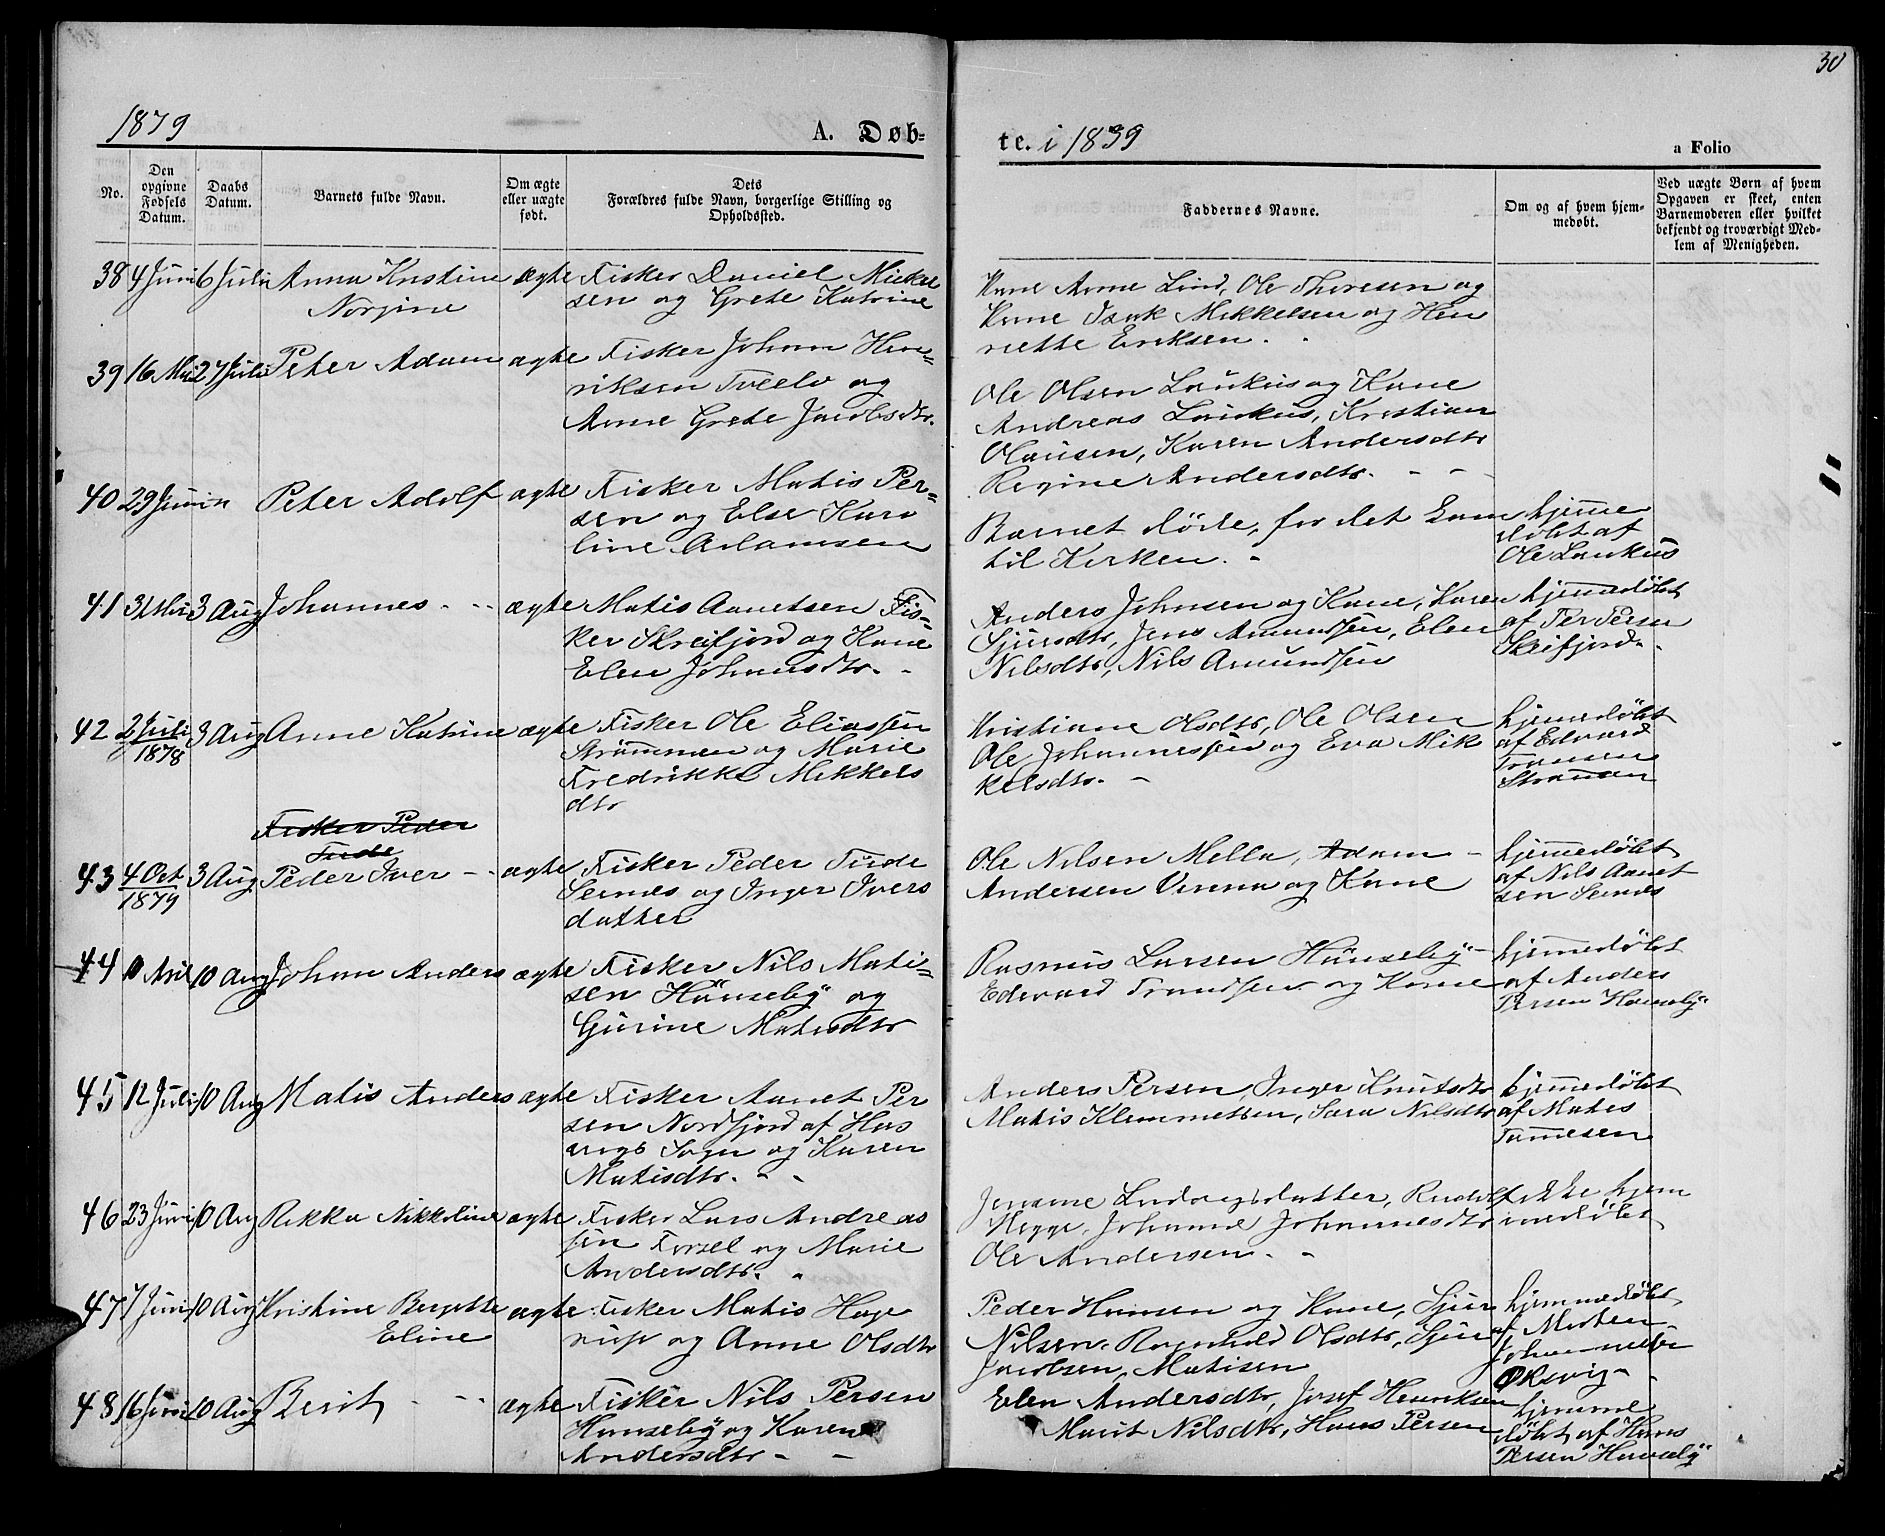 30
1879
A. Døb-
te. i 1839
a Folio
No.
Den
opgivne
Fødsels
Datum.
Daabs
Datum.
Barnets fulde Navn.
Om ægte
eller uægte
født.
Dets
Forældres fulde Navn, borgerlige Stilling og
Opholdssted.
Faddernes Navne.
Om og af hvem hjem-
medøbt.
Ved uægte Børn af hvem
Opgaven er skeet, enten
Barnemoderen eller hvilket
bekjendt og troværdigt Med-
lem af Menigheden.
38 4 Juni 6 Juli Anna Kristine ægte Fisker Daniel Mickel
Norgine sen og Grete Katrine
Kone Anne Lind, Ole Thoresen og
Kone Isak Mikkelsen og Hen
riette Eriksen.
39 16 Mai 27 Juli Peter Adam ægte Fisker Johan Hen=
riksen Tveelv og
Anne Grete Jacobsdtr.
Ole Olsen Laukus og Kone
Andreas Laukus, Kristian
Olausen, Karen Andersdtr
Regine Andersdtr. - -
40 29 Juni Peter Adolf ægte Fisker Matis Per=
sen og Else Karo
line Adamsen
Barnet døde, før det kom
til Kirken. -
hjemme
døbt af
Ole Laukus
41 31 Mai 3 Aug Johannes - - ægte Matis Aanetsen Fis=
ker Skreifjord og Kone
Elen Johannsdtr. -
Anders Johnsen og Kone, Karen
Sjursdtr, Jens Amundsen, Elen
Nilsdtr, Nils Amundsen
hjemmedøbt
af Per Persen
Skeifjord.
42 2 Juli 3 Aug Anne Katrine ægte Fisker Ole Eliassen
1878
Strømmen og Marie
Fredrikke Mikkels
dtr
Kristiane Olsdtr, Ole Olsen
Ole Johannessen og Eva Mik
kelsdtr. -
hjemedøbt
af Edvard
Transen
Strømmen
Fisker Peder
Tude
43 4 Oct 3 Aug Peder Iver - - ægte Fisker Peder Tude
1879
Sernes og Inger Ivers
datter
Ole Nilsen Mella, Adam -
Andersen Vinna og Kone
hjemmedøbt
af Nils Aanet
sen Sernes
44 10 Aug Johan Anders ægte Fisker Nils Mati=
sen Hönseby og
Gurine Matisdtr
Rasmus Larsen Hönseby -
Edevard Trandsen og Kone
hjemmedøbt
af Anders
Persen Hönseby
45 12 Juli 10 Aug Matis Anders ægte Fisker Aanet Per
sen Nordfjord af Has
vigs Sogn og Karen
Matisdtr. - -
Anders Persen, Inger Knutsdtr
Matis Klemmetsen, Sara Nilsdtr
hjemmedøbt
af Matis
Tomesen
46 23 Juni 10 Aug Rikka Nikkoline ægte Fisker Lars Andreas
sen Forsel og Marie
Andersdtr. -
Ludvigsdatter, Rudolf
Hegge, Johanne Johannesdtr
Ole Andersen. -
ikke hjem
medøbt
47 7 Juni 10 Aug Kristine Bergette ægte Fisker Matis Hage
Eline
rup og Anne Olsdtr
Peder Hansen og Kone, Sjur
Nilsen, Ragnhild Olsdtr, Sjur
Jacobsen, Matisen
hjemmedøbt
af Morten
Johannessen
Øksvig -
48 16 Juni 10 Aug Berit - - ægte Fisker Nils Persen
Hönseby og Karen
Andersdtr - -
Elen Andersdtr, Josef Henriksen
Marit Nilsdtr, Hans Persen
hjemme
døbt af Hans
Persen Hönseby